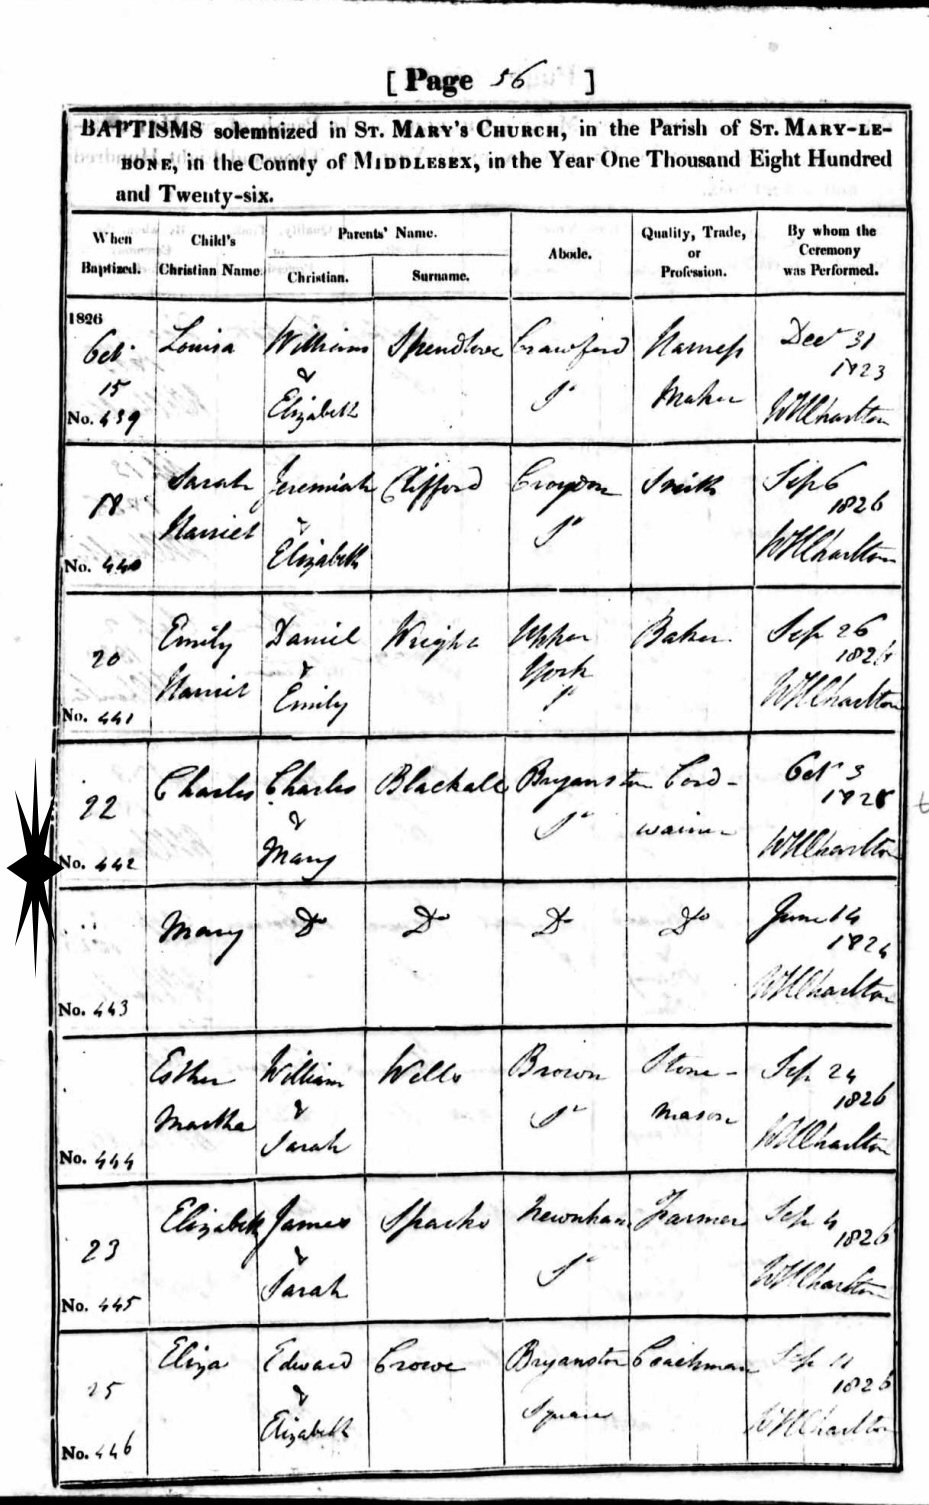 [ Page 56 ]
BAPTISMS solemnized in ST. MARY'S CHURCH, in the Parish of ST. MARY-LE-
BONE, in the County of MIDDLESEX, in the Year One Thousand Eight Hundred
and Twenty-six.
When Baptized. Child's Christian Name. Parents' Name. Christian. Surname. Abode. Quality, Trade, or Profession. By whom the Ceremony was Performed.
1826
Oct. Louisa William Spendlove Crawford Harness Decr 31
1823
15 & St Maker
No. 439 Elizabeth WHCharlton
18 Sarah Jeremiah Clifford Croydon Smith Sep 6
1826
Harriet & St
No. 440 Elizabeth WHCharlton
20 Emily Daniel Wright Upper Baker Sep 26
1826
Harriet & York
St
No. 441 Emily WHCharlton
22 Charles Charles Blackall Bryanston Cord- Oct 3
& St wainer
No. 442 Mary WHCharlton
" Mary Do Do Do Do June 14
1824
No. 443 WHCharlton
Esther William Wells Brown Stone- Sep 24
1826
Martha & St mason
No. 444 Sarah WHCharlton
23 Elizabeth James Sparks Newnham Farmer Sep 4
1826
& St
No. 445 Sarah WHCharlton
25 Eliza Edward Crowe Bryanston Coachman Sep 11
1826
& Square
No. 446 Elizabeth WHCharlton